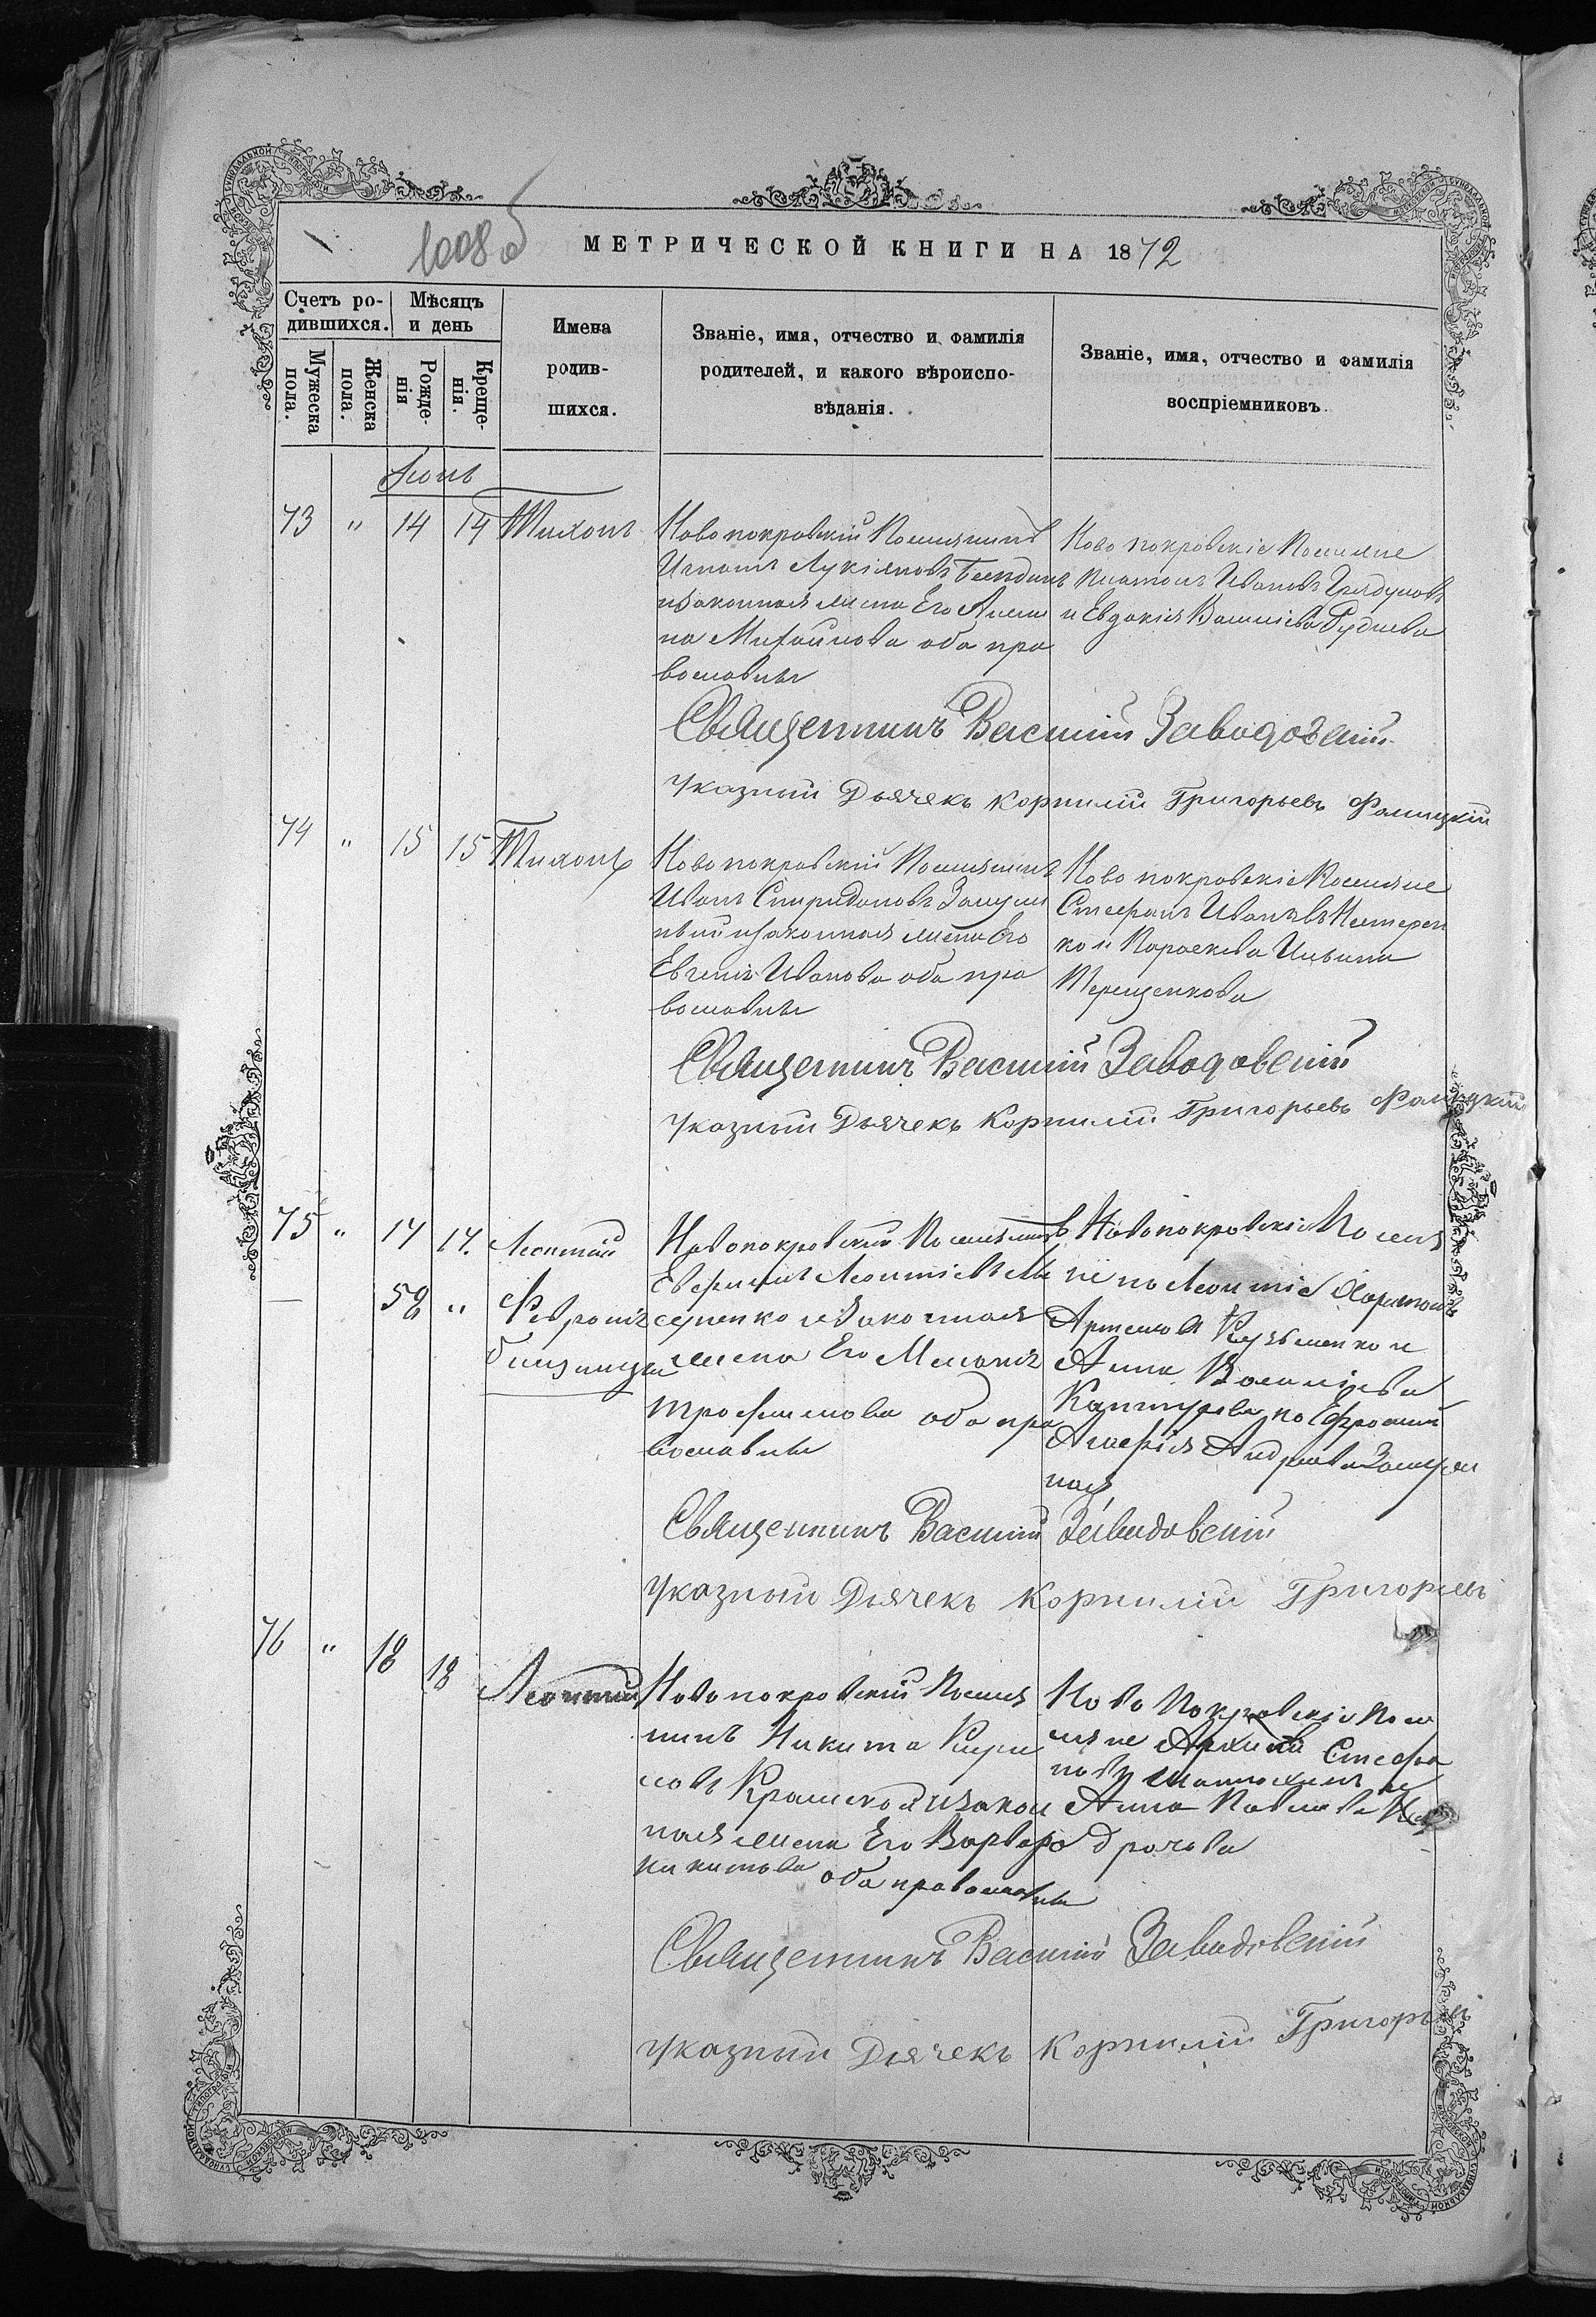 1008 об
МЕТРИЧЕСКОЙ КНИГИ НА 1872
Счетъ ро-
дившихся.
Мѣсяцъ
и день
Мужеска
пола.
Женска
пола.
Рожде-
нія
Креще-
нія.
Имена
родив-
шихся.
Званіе, имя, отчество и фамилія
родителей, и какого вѣроиспо-
вѣданія.
Званіе, имя, отчество и фамилія
воспріемниковъ.
Іюнь
73 " 14 14 Тихонъ
Новопокровскій Поселянинъ
Игнатъ Лукіяновъ
и законная жена Его
на Михайлова оба пра
вославные
Ново покровскіе Поселяне
Платонъ Ивановъ
и Евдокія Василіева Руднева
Священникъ Василій Заводовскій
Указный Дьячекъ Корнилій Григорьевъ Фалицкій
74 " 15 15 Тихонъ
Новопокровскій Поселянинъ
Иванъ Спиридоновъ
и законная жена Его
Евгенія Иванова оба пра
вославные
Ново покровскіе Поселяне
Стефанъ Ивановъ Нестерен
ко и Параскева Ильина
Терещенкова
Священникъ Василій Заводовскій
Указный Дьячекъ Корнилій Григорьевъ Фалицкій
75 " 17 17. Леонтій
58 " Февронія
близнецы
Новопокровскій Поселянинъ
Леонтіевъ
и законная
жена Его Меланія
Трофимова оба пра
вославные
Новопокровскіе Поселя
не по Леонтіе
Кузьменко и
Анна Василіева
по
Андреева
ная
Священникъ Василій Заводовскій
Указный Дьячекъ Корнилій Григорьевъ
76 " 18 18 Леонтій
Новопокровскій Поселя
нинъ Никита Кири
ловъ и закон
ная жена Его Варвара
Никитова оба православные
Ново Покровскіе Посе
ляне Стефа
новъ
Анна Павлова
Священникъ Василій Заводовскій
Указный Дьячекъ Корнилій Григорьевъ